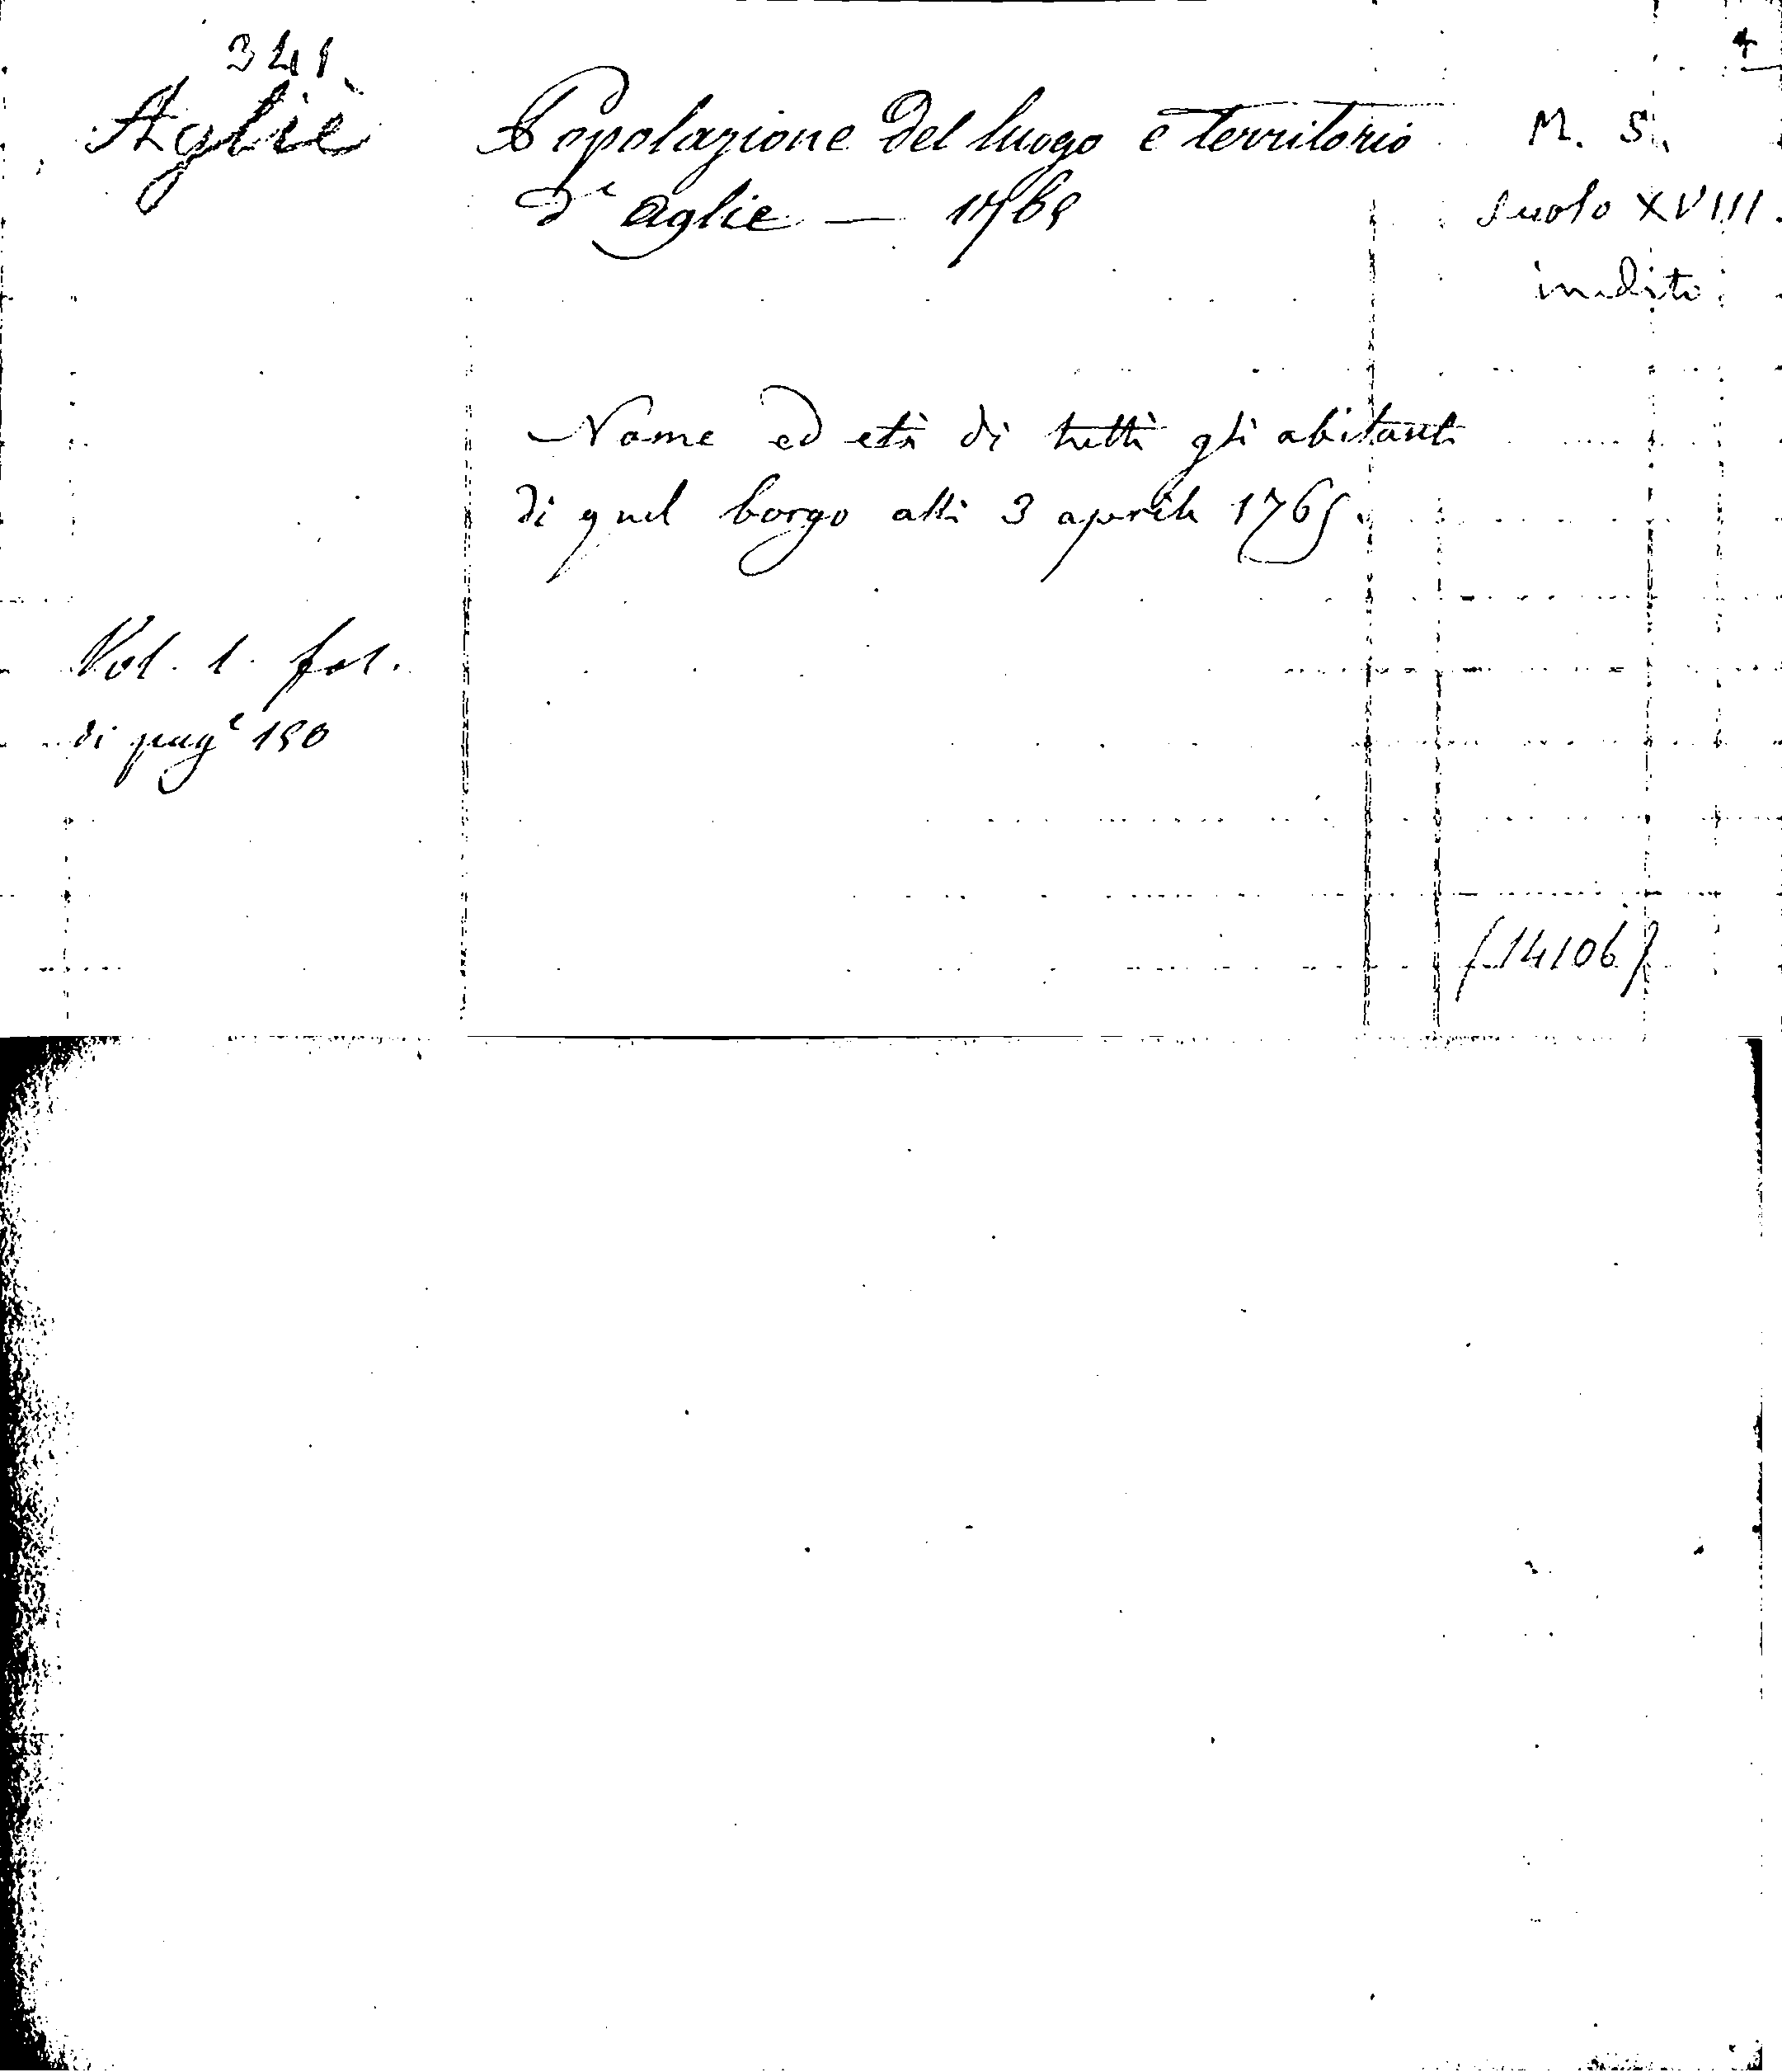 341
Agliè
Popolazione del luogo e territorio
d'Agliè — 1765
M. S.
secolo XVIII.
inedito
Nome ed età di tutti gli abitanti
di quel borgo alli 3 aprile 1765.
Vol. 1. fol.
di pag.e 150
(14106)